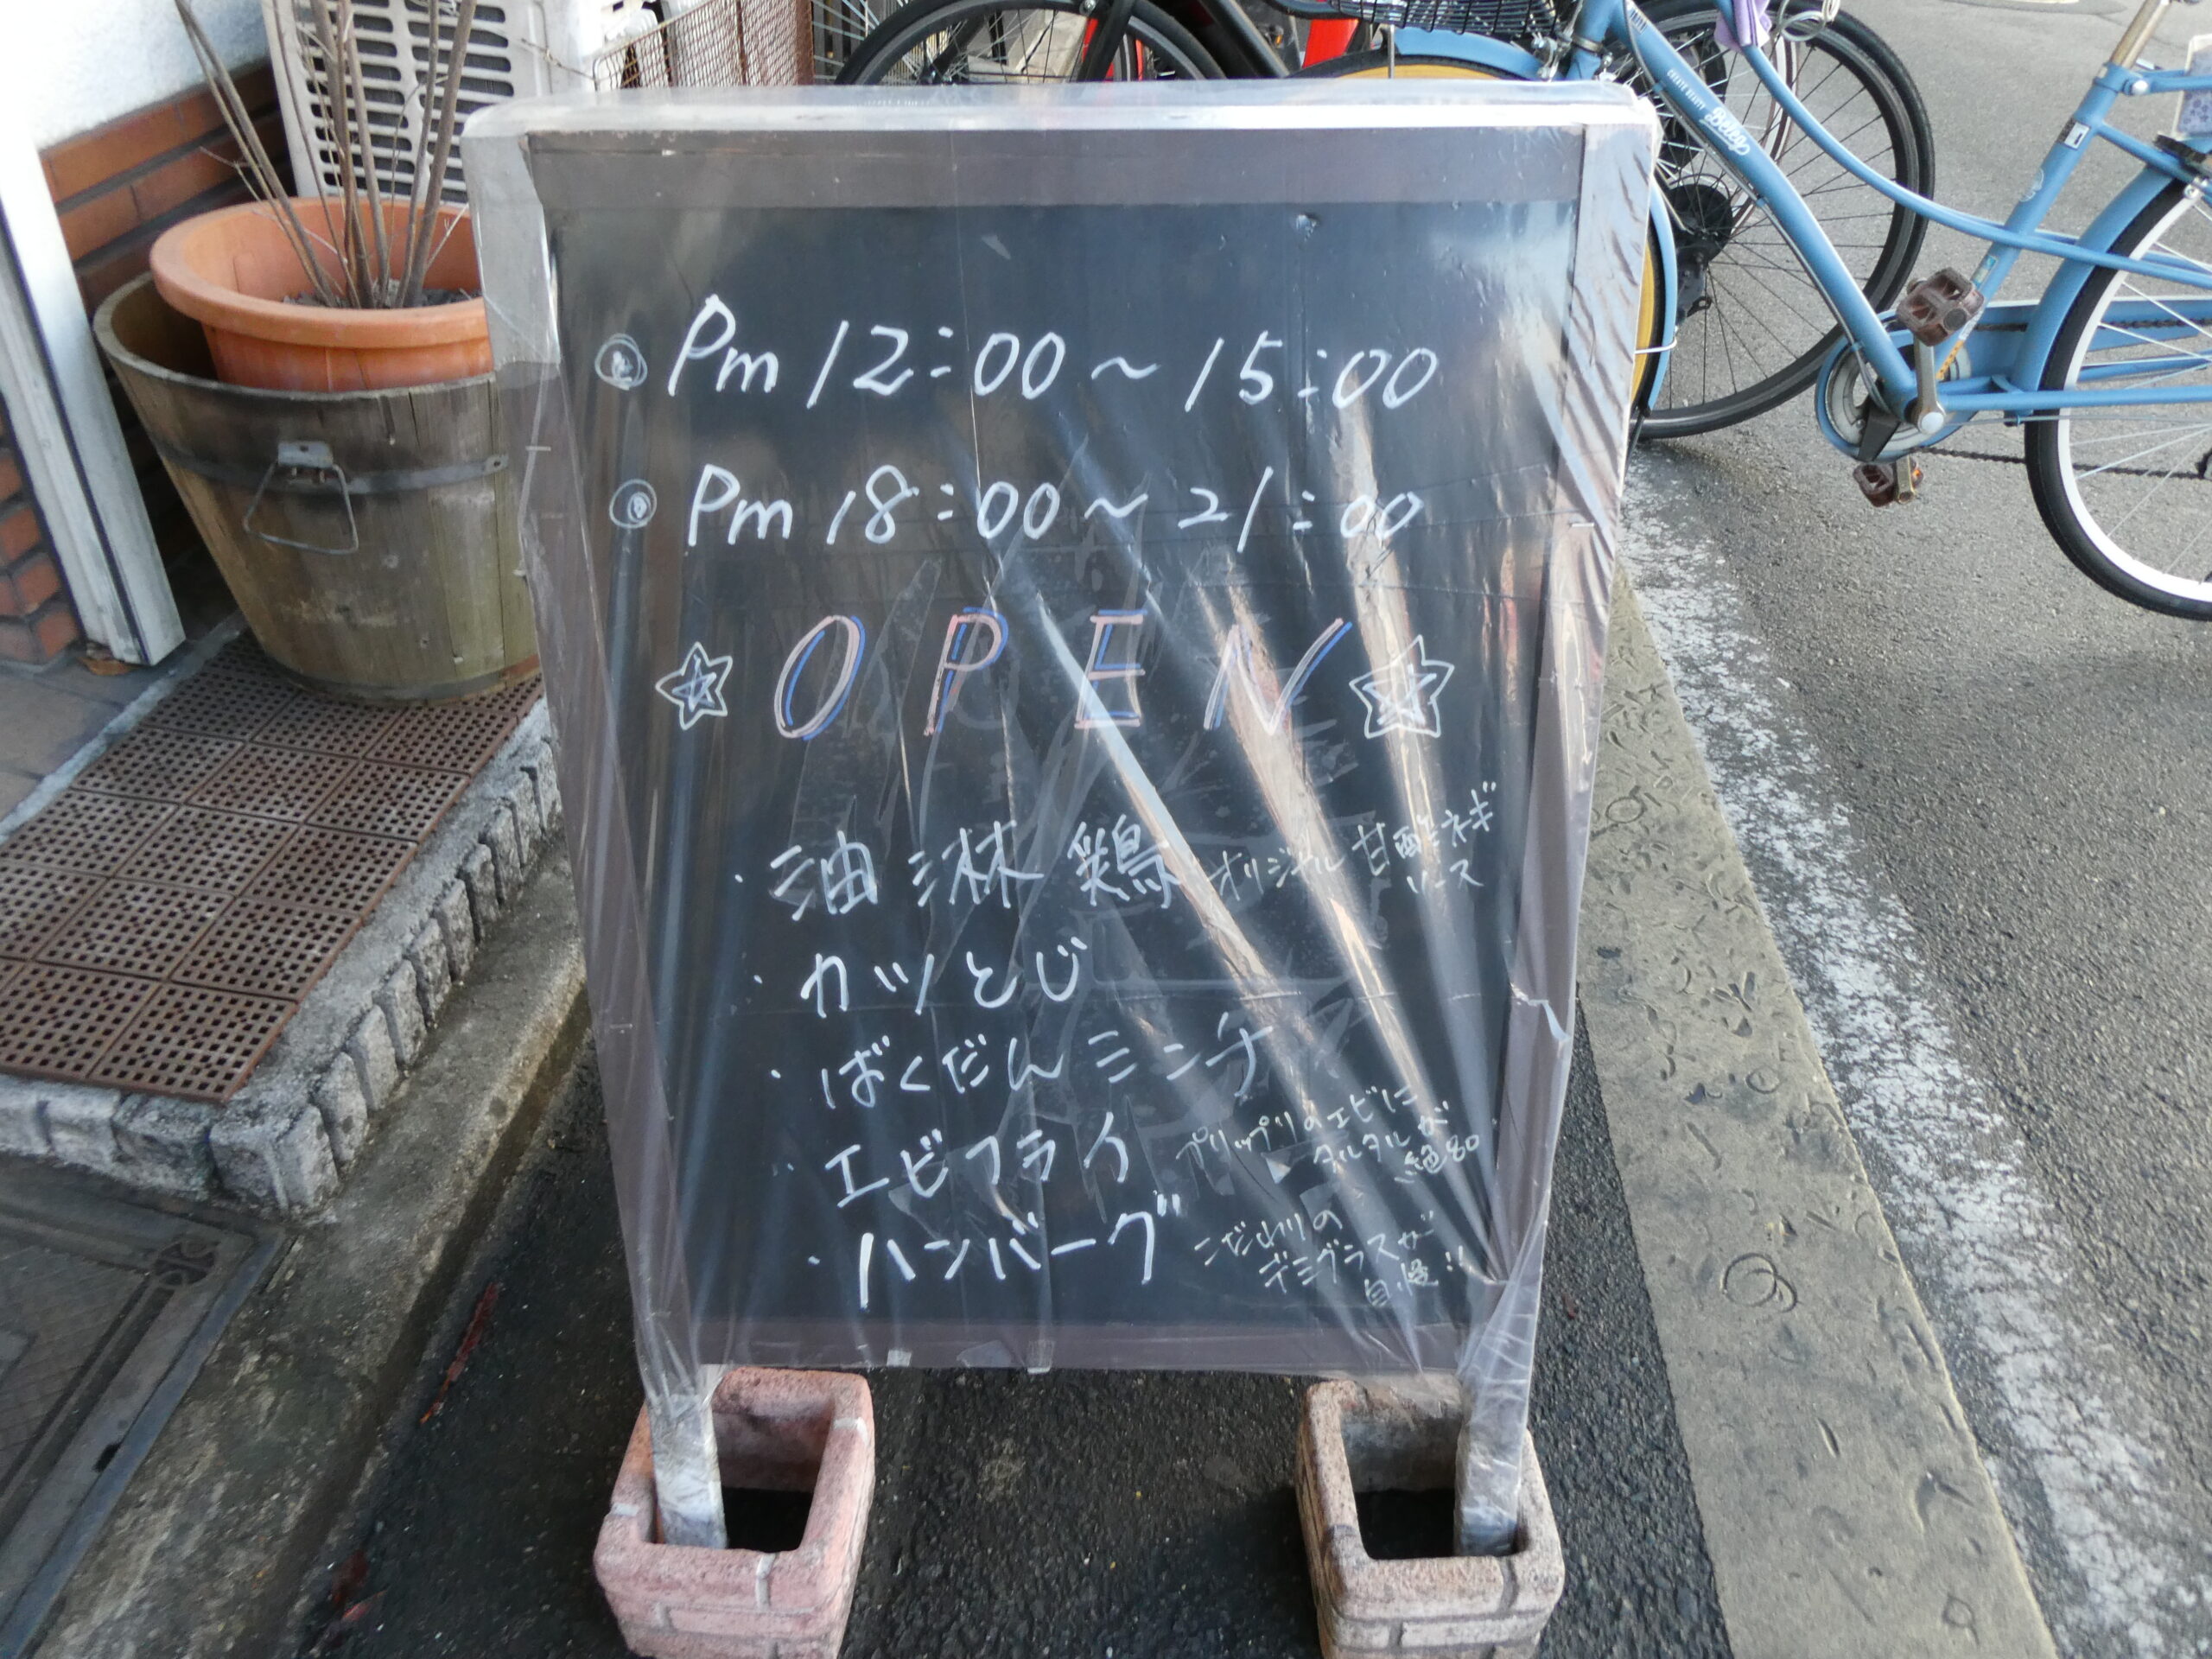 Pm 12:00~15:00
Pm 18:00~21:00
OPEN
・油淋鶏 オリジナル甘酢ネギ
ソース
・カツとじ
・ばくだんミンチ
・エビフライ プリップリのエビに
タルタルが
絶品
・ハンバーグ こだわりの
デミグラスが
自慢!!
Beleg